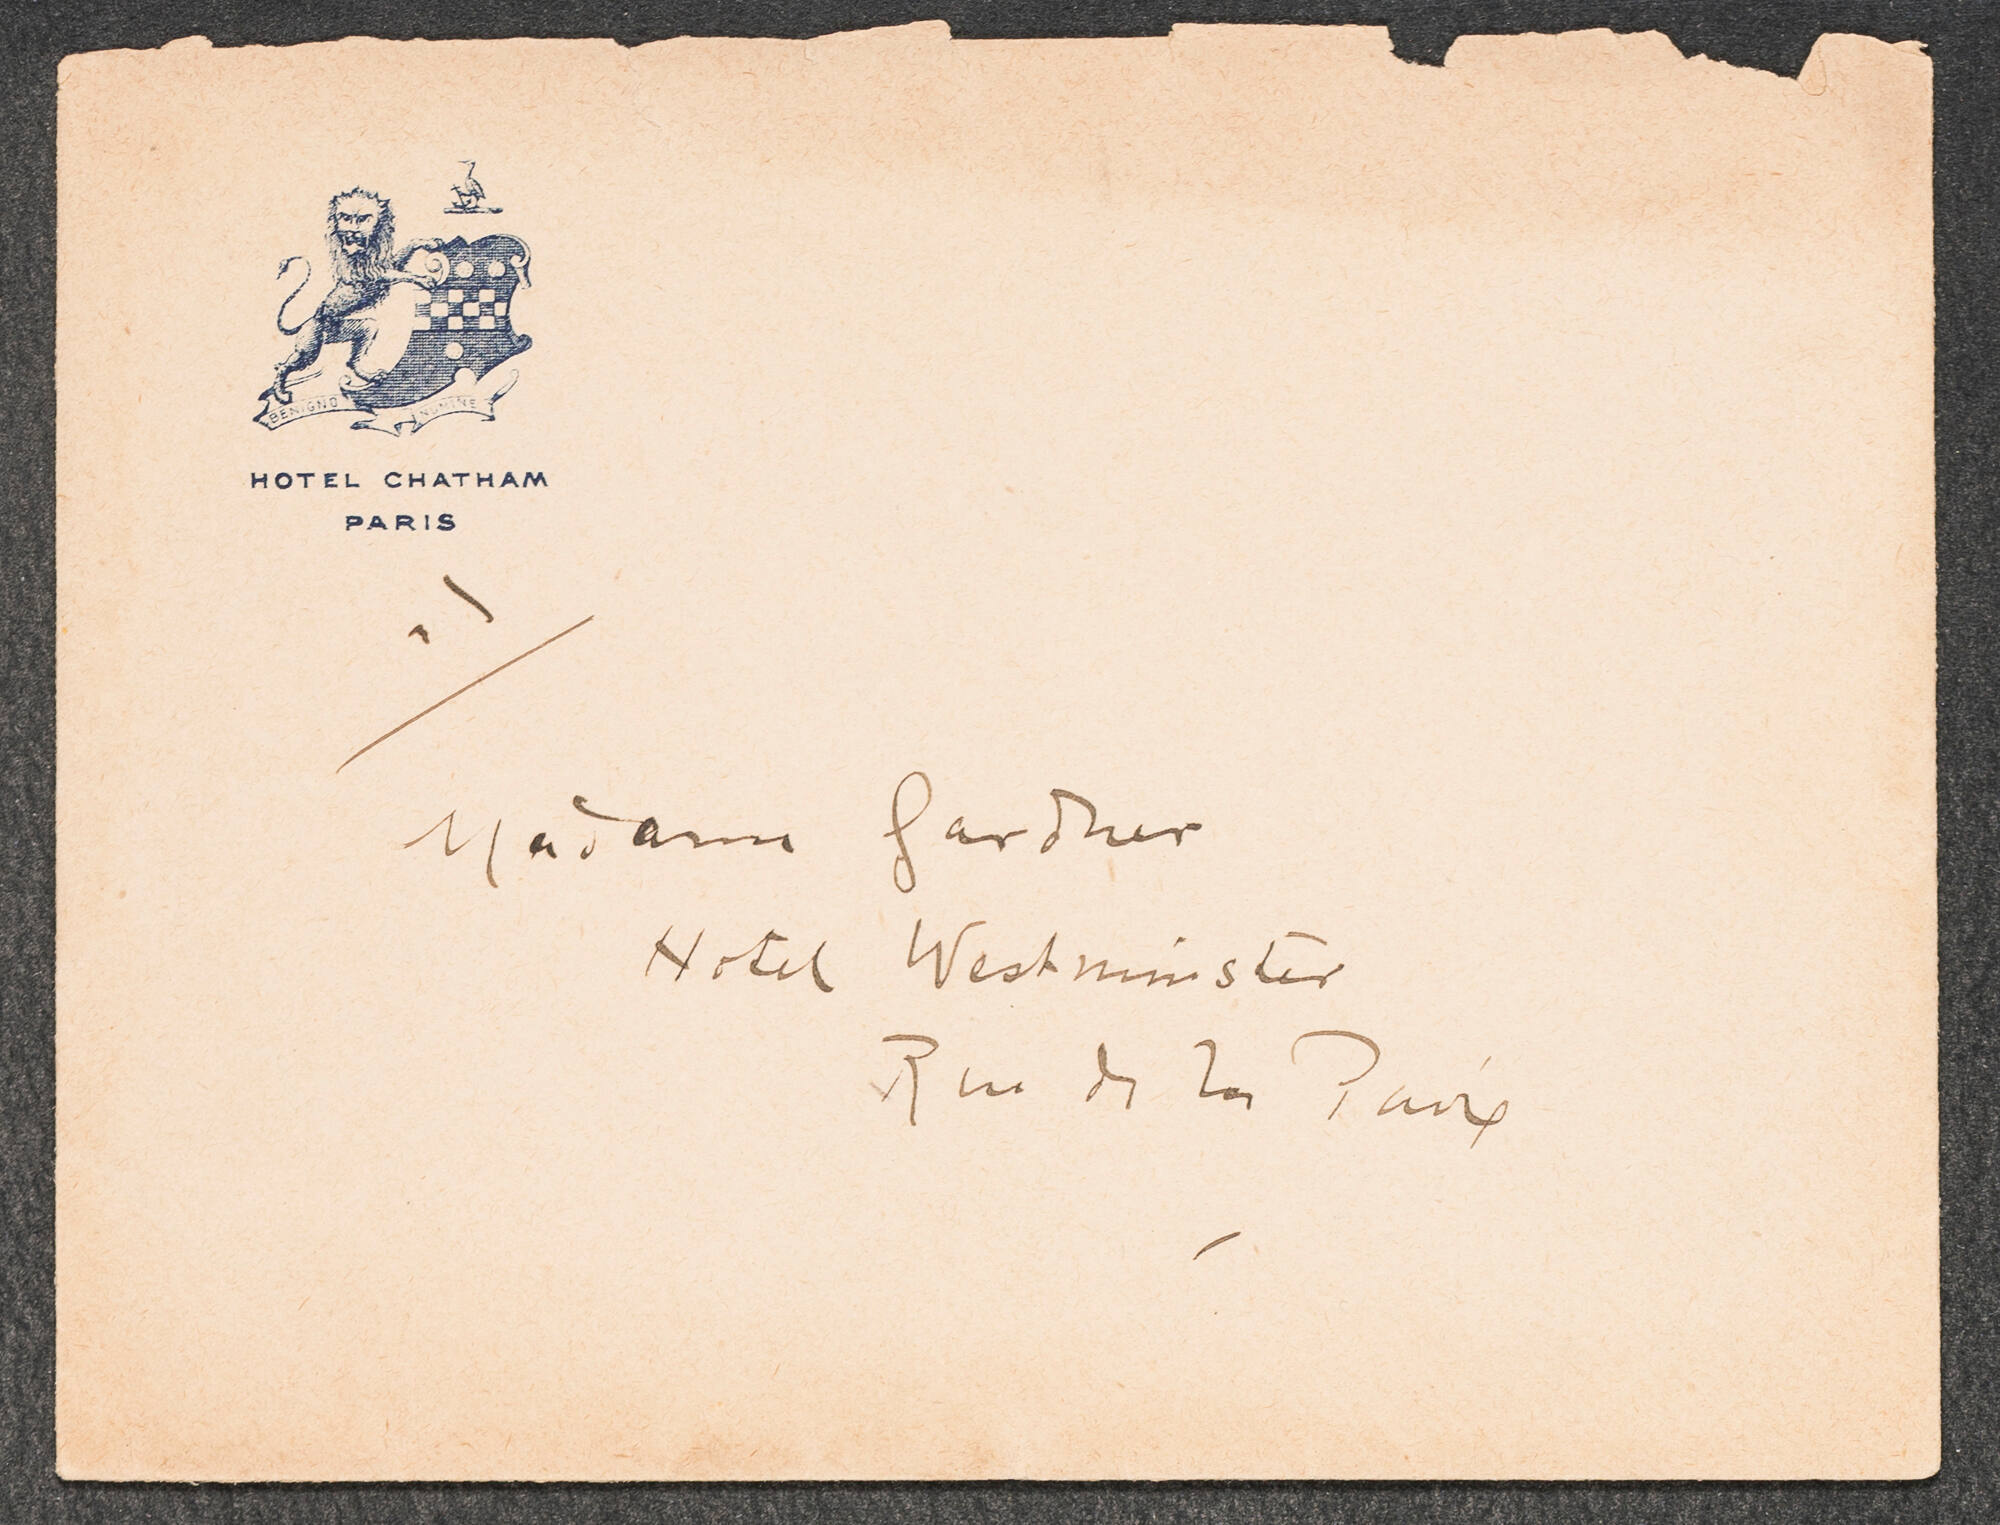 BENIGNO NUMINE
HOTEL CHATHAM
PARIS
Madame Gardner
Hotel Westminster
Rue de la Paix